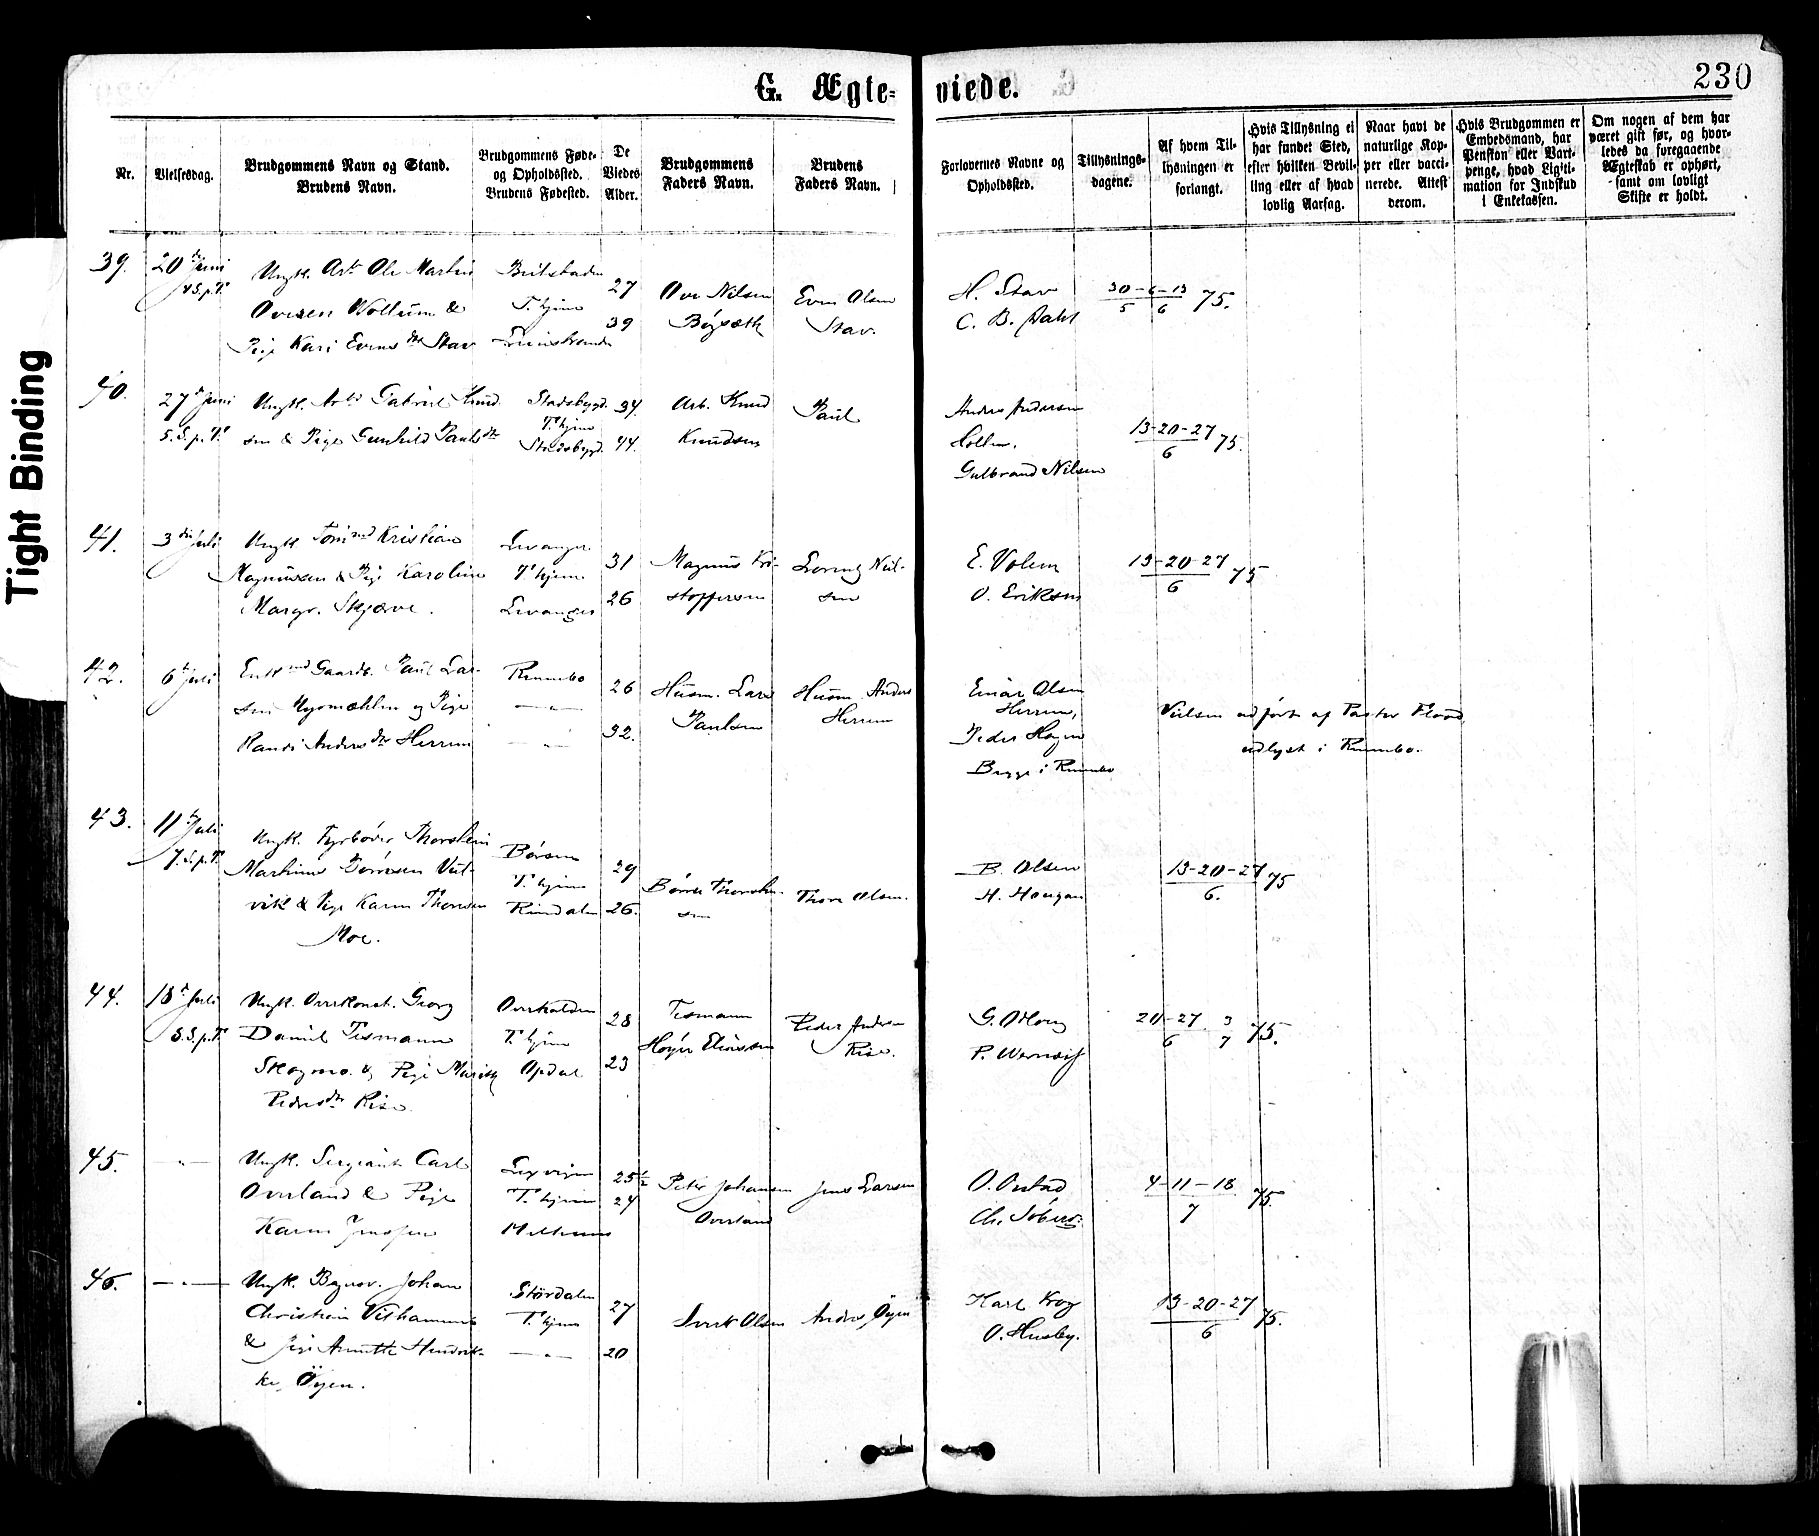 Tight Binding
G. Ægte-
viede.
230
Nr.
Vielsesdag.
Brudgommens Navn og Stand.
Brudens Navn.
Brudgommens Føde-
og Opholdssted.
Brudens Fødested.
De
Viedes
Alder.
Brudgommens
Faders Navn.
Brudens
Faders Navn.
Forlovernes Navne og
Opholdssted.
Tillysnings-
dagene.
Af hvem Til-
lysningen er
forlangt.
Hvis Tillysning ei
har fundet Sted,
efter hvilken Bevil-
ling eller af hvad
lovlig Aarsag.
Naar havt de
naturlige Kop-
per eller vacci-
nerede. Attest
derom.
Hvis Brudgommen er
Embedsmand, har
Pension eller Vart-
penge, hvad Legiti-
mation for Indskud
i Enkekassen.
Om nogen af dem har
været gift før, og hvor-
ledes da foregaaende
Ægteskab er ophørt,
samt om lovligt
Skifte er holdt.
39.
20 Juni
Ungk. Arb Ole Martin
Ovesen Vollum &
Pige Kari Evens dtr Stav
T.hjem
27
39
Ove Nilsen
Even Olsen
Stav.
H. Stav
C. B. Dahl
30-6-13 75.
5 6
40.
27 Juni
5. S. p. T.
Ungk. Arb Gabriel Knud
sen & Pige Gunhild Pauls dtr
Stadsbygd.
T.hjem
Stadsbygd.
34.
44.
Arb. Knud
Knudsen
Paul
Anders Andersen
Gulbrand Nilsen
13-20-27 75.
6
41.
3 Juli
Ungk Tømmd Kristian
Magnussen & Pige Karoline
Margr. Skjerve.
Levanger
T.hjem
Levanger
31
26
Magnus Kri-
stoffersen
Lorentz Niel-
sen
E. Volen
O. Eriksen
13-20-27 75
6
42.
6 Juli
Enkmd Gaardb. Paul Lar-
sen Nysmæhlen og Pige
Randi Anders dtr Herrem
Rennebo
26
32.
Husm. Lars
Paulsen
Husm. Anders
Herrem
Einar Olsen
Herrem,
Peder Hagen
Begge i Rennebo
Vielsen udført af Pastor Flood,
udlyst i Rennebo.
43.
11 Juli
7. S. p. T.
Ungk. Fyrbøder Thorstein
Martinus Børresen Vest-
vik & Pige Karen Thoresen
Moe.
Børsen
T.hjem
Rindalen
29
26.
Børre Thorsten-
sen
Thore Olsen.
B. Olsen
H. Haugan
13-20-27 75
6.
44.
18 Juli
8. S. p. T.
Ungk. Overkonst. Georg
Daniel Tismann
Skogmo. & Pige Marith
Peders dtr Rise.
Overhalden
T.hjem
Opdal
28
23
Tismann
Høyer Eliassen
Peder Andersen
Rise.
P. Wernsij
20-27 3 75.
6 7
45.
Ungk. Sergeant Carl
Overland & Pige
Karen Jenssen
Lexvigen
T.hjem
Melhuus
25 1/2
24
Peter Johansen
Overland
Jens Larsen
O. Ovstad
4-11-18 75.
7
46.
Ungk. Bagersv. Johan
Christian Vithammer
& Pige Anette Hendrik-
ke Öyen.
Størdalen
T.hjem
27
20
Sivert Olsen
Anders Öyen
Karl Krog
O. Husby.
13-20-27 75.
6